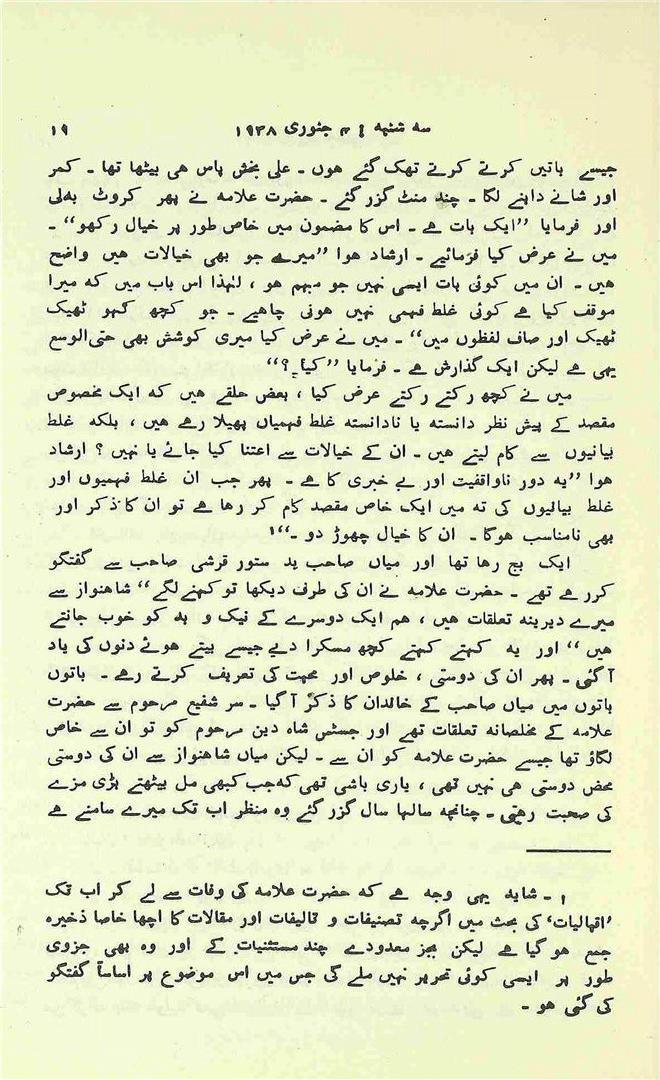 سہ شنبہ : ۴ جنوری ۱۹۳۸ ۱۹
جیسے باتیں کرتے کرتے تھک گئے ہوں ۔ علی بخش پاس ہی بیٹھا تھا ۔ کمر
اور شانے دابنے لگا ۔ چند منٹ گزر گئے ۔ حضرت علامہ نے پھر کروٹ بدلی
اور فرمایا ”ایک بات ہے ۔ اس کا مضمون میں خاص طور پر خیال رکھو“ ۔
میں نے عرض کیا فرمائیے ۔ ارشاد ہوا ”میرے جو بھی خیالات ہیں واضح
ہیں ۔ ان میں کوئی بات ایسی نہیں جو مبہم ہو ، لہٰذا اس باب میں کہ میرا
موقف کیا ہے کوئی غلط فہمی نہیں ہونی چاہیے ۔ جو کچھ کہو ٹھیک
ٹھیک اور صاف لفظوں میں“ ۔ میں نے عرض کیا میری کوشش بھی حتی‌الوسع
یہی ہے لیکن ایک گذارش ہے ۔ فرمایا ”کیا ؟“
میں نے کچھ رکتے رکتے عرض کیا ، بعض حلقے ہیں کہ ایک مخصوص
مقصد کے پیش نظر دانستہ یا نادانستہ غلط فہمیاں پھیلا رہے ہیں ، بلکہ غلط
بیانیوں سے کام لیتے ہیں ۔ ان کے خیالات سے اعتنا کیا جائے یا نہیں ؟ ارشاد
ہوا ”یہ دور ناواقفیت اور بے خبری کا ہے ۔ پھر جب ان غلط فہمیوں اور
غلط بیانیوں کی تہ میں ایک خاص مقصد کام کر رہا ہے تو ان کا ذکر اور
بھی نامناسب ہوگا ۔ ان کا خیال چھوڑ دو ۔“۱
ایک بج رہا تھا اور میاں صاحب بد ستور قرشی صاحب سے گفتگو
کررہے تھے ۔ حضرت علامہ نے ان کی طرف دیکھا تو کہنے لگے ”شاہنواز سے
میرے دیرینہ تعلقات ہیں ، ہم ایک دوسرے کے نیک و بد کو خوب جانتے
ہیں“ اور یہ کہتے کہتے کچھ مسکرا دیے جیسے بیتے ہوئے دنوں کی یاد
آگئی ۔ پھر ان کی دوستی ، خلوص اور محبت کی تعریف کرتے رہے ۔ باتوں
باتوں میں میاں صاحب کے خاندان کا ذکر آ گیا ۔ سر شفیع مرحوم سے حضرت
علامہ کے مخلصانہ تعلقات تھے اور جسٹس شاہ دین مرحوم کو تو ان سے خاص
لگاؤ تھا جیسے حضرت علامہ کو ان سے ۔ لیکن میاں شاہنواز سے ان کی دوستی
محض دوستی ہی نہیں تھی ، یاری باشی تھی کہ جب کبھی مل بیٹھتے بڑی مزے
کی صحبت رہتی ۔ چنانچہ سالہا سال گزر گئے وہ منظر اب تک میرے سامنے ہے
۱ - شاید یہی وجہ ہے کہ حضرت علامہ کی وفات سے لے کر اب تک
’اقبالیات‘ کی بحث میں اگرچہ تصنیفات و تالیفات اور مقالات کا اچھا خاصا ذخیرہ
جمع ہو گیا ہے لیکن بجز معدودے چند مستثنیات کے اور وہ بھی جزوی
طور پر ایسی کوئی تحریر نہیں ملے گی جس میں اس موضوع پر اساساً گفتگو
کی گئی ہو ۔